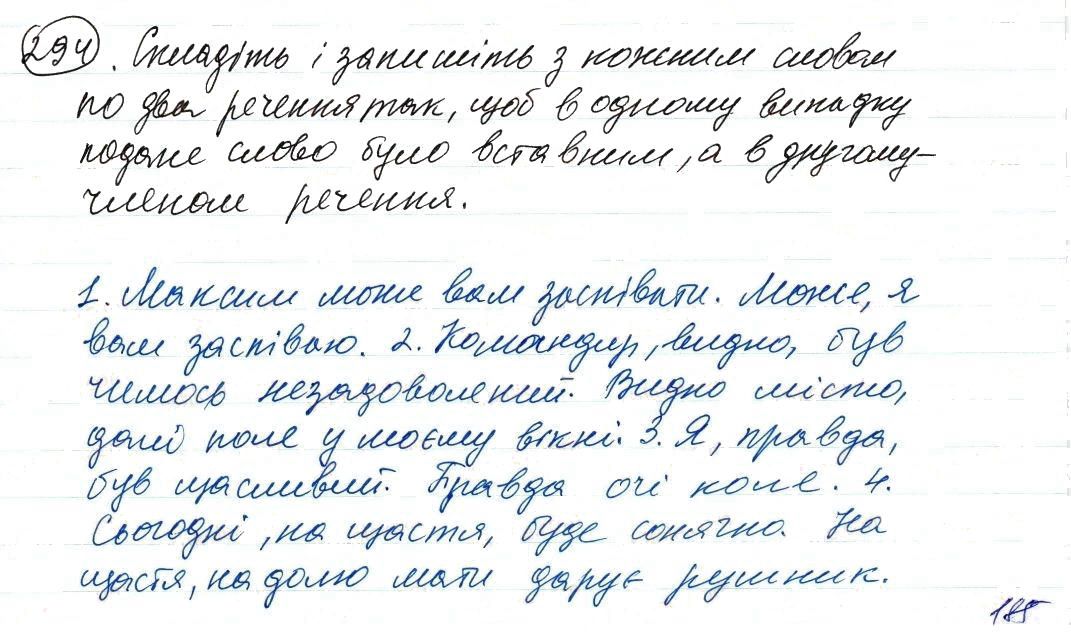 294. Складіть і запишіть з кожним словом
по два речення так, щоб в одному випадку
подане слово було вставним, а в другому-
членом речення.
1. Максим може вам заспівати. Може, я
вам заспіваю. 2. Командир, видно, був
чимось незадоволений. Видно місто,
далі поле у моєму вікні. 3. Я, правда,
був щасливий. Правда очі коле. 4.
Сьогодні, на щастя, буде сонячно. На
щастя, на долю мати дарує рушник.
185